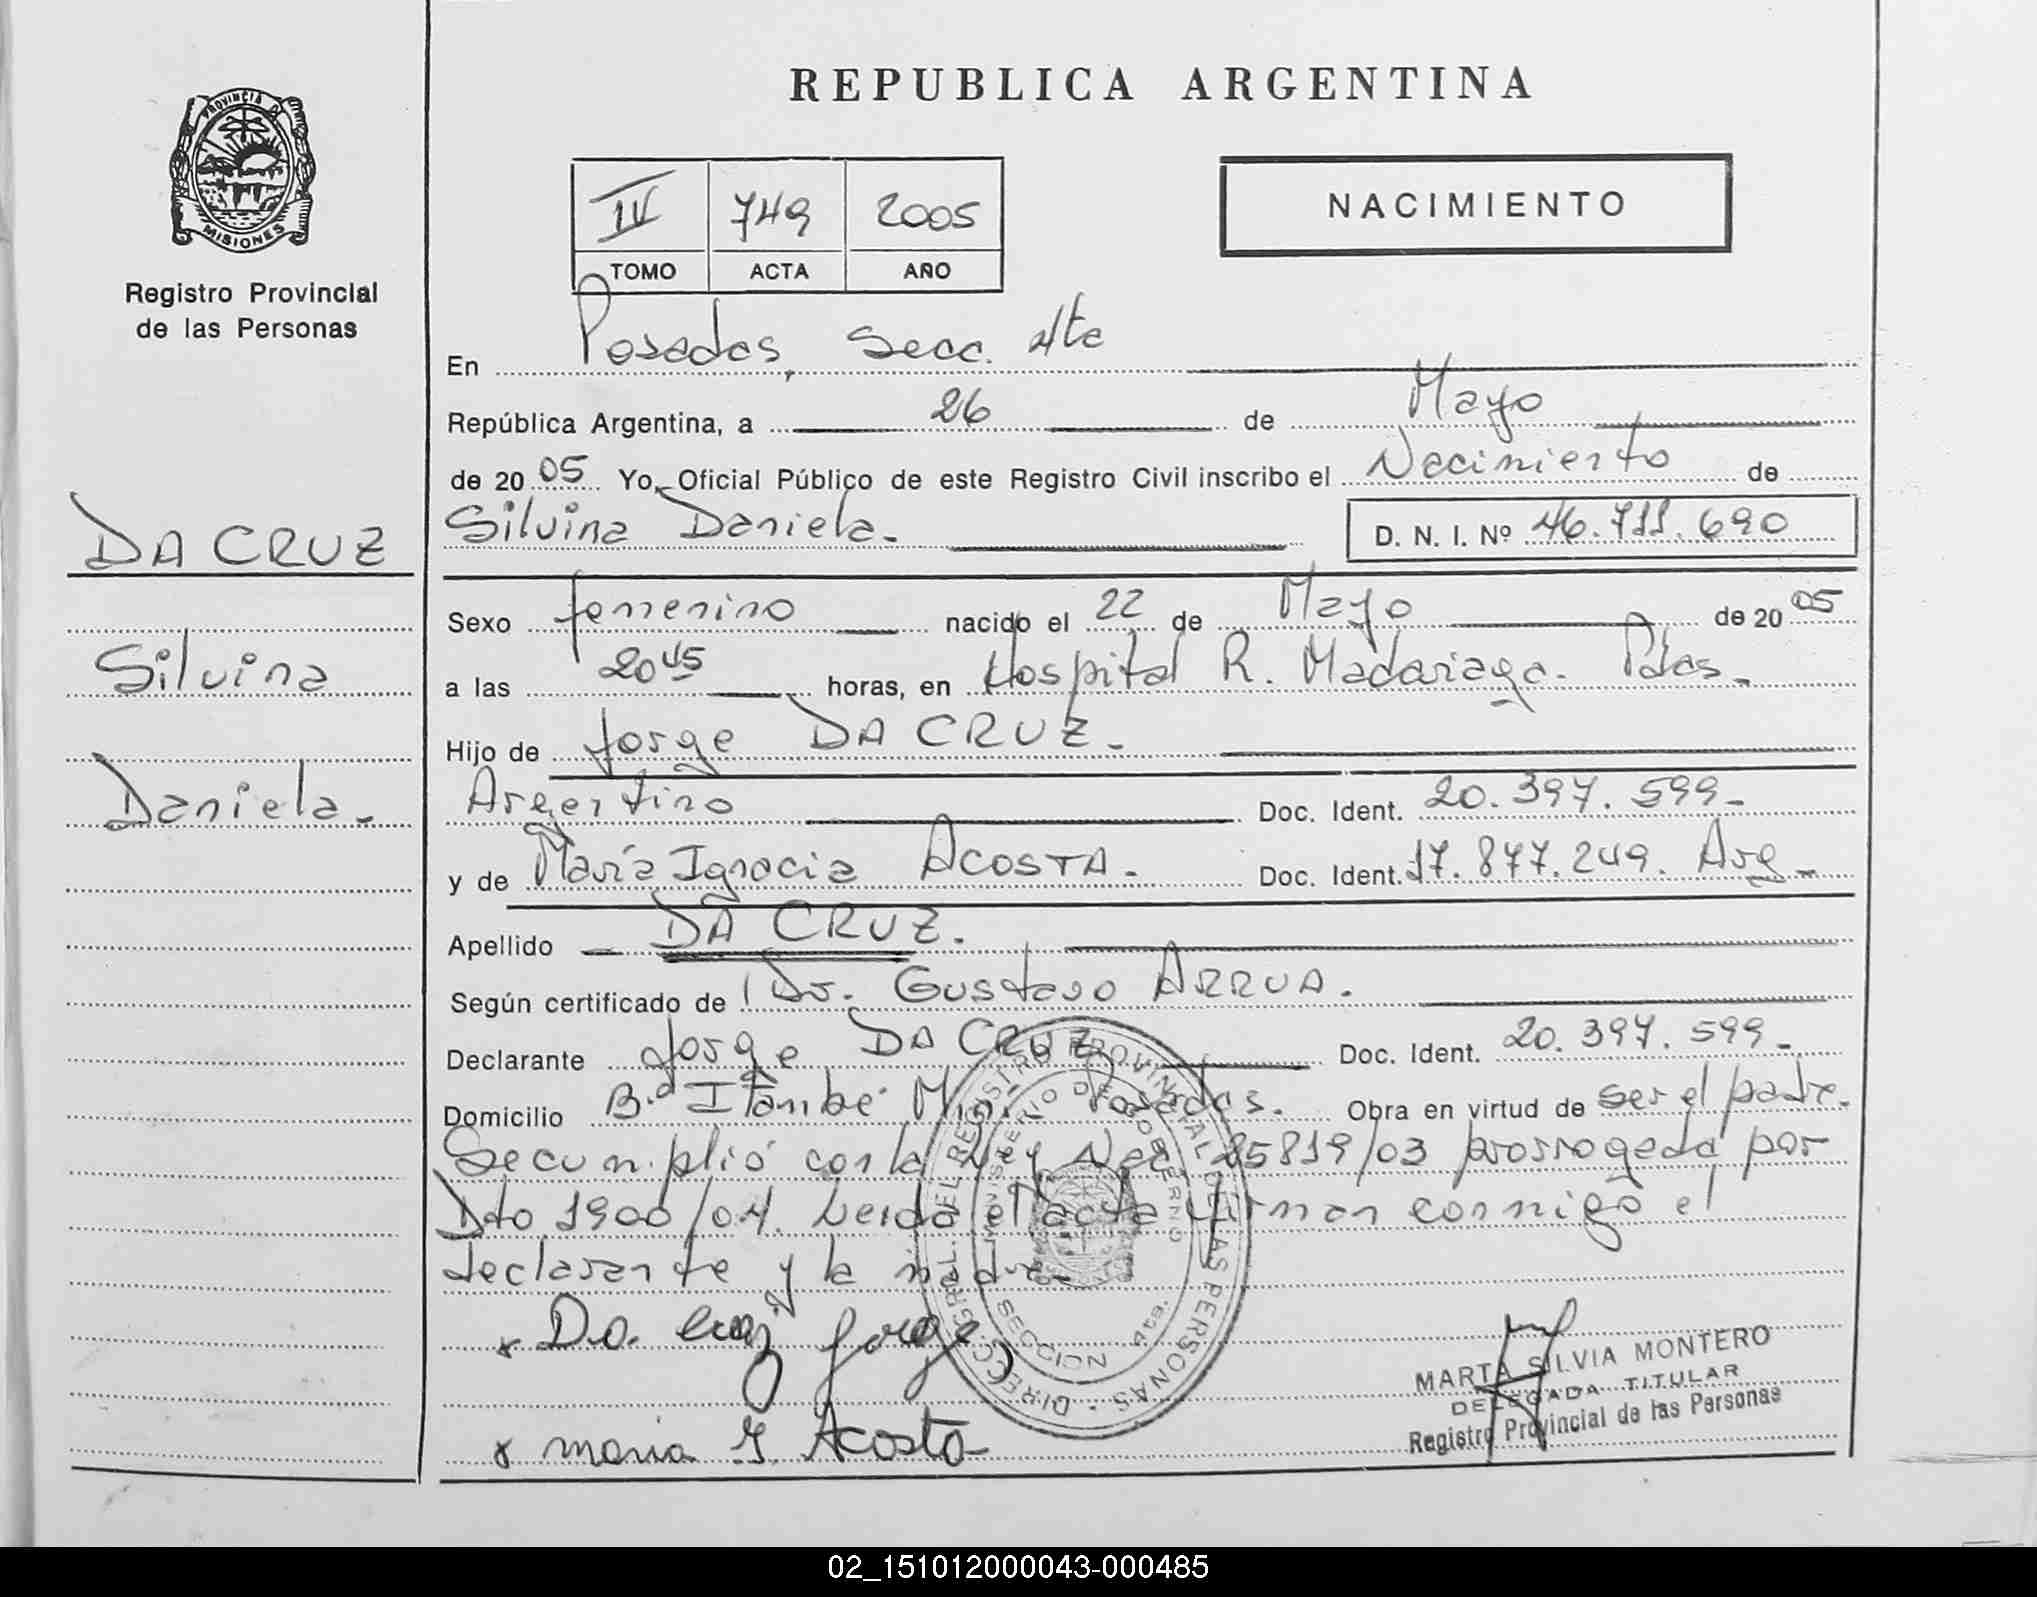 REPUBLICA ARGENTINA
PROVINCIA DE
MISIONES
Registro Provincial
de las Personas
IV 749 2005
TOMO ACTA AÑO
NACIMIENTO
En Posadas, Secc. 4ta
República Argentina, a 26 de Mayo
de 2005 Yo, Oficial Público de este Registro Civil inscribo el Nacimiento de
Silvina Daniela. D. N. I. Nº 46.711.690
DA CRUZ
Silvina
Daniela.
Sexo femenino nacido el 22 de Mayo de 2005
a las 20 45 horas, en Hospital R. Madariaga. Pdas.
Hijo de Jorge DA CRUZ.
Argentino Doc. Ident. 20.397.599-
y de María Ignacia ACOSTA. Doc. Ident. 17.877.249. Arg.
Apellido DA CRUZ.
Según certificado de Dr. Gustavo ARRUA.
Declarante Jorge DA CRUZ Doc. Ident. 20.397.599-
Domicilio B.º Itambé Mini. Posadas. Obra en virtud de ser el padre.
Se cumplió con la Ley Nac. 25819/03 prorrogada por
Dto 1900/04. Leida el acta firman conmigo el
declarante y la madre.
x Da. Cruz Jorge
x maria I. Acosta
DIRECC. GRAL. DEL REGISTRO PROVINCIAL DE LAS PERSONAS
MINISTERIO DE GOBIERNO
SECCION 4ta.
MARTA SILVIA MONTERO
DELEGADA TITULAR
Registro Provincial de las Personas
02_151012000043-000485